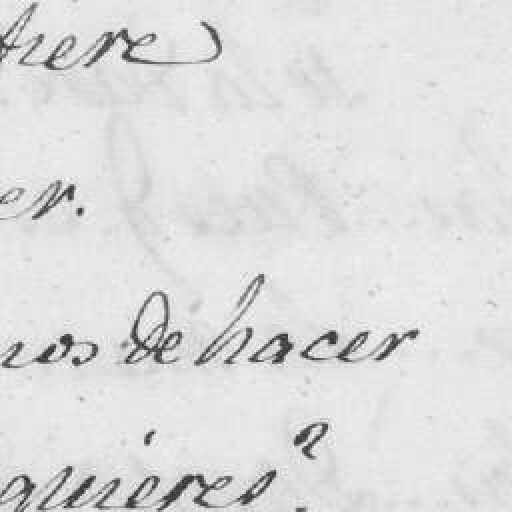 tiere
er.
nos de hacer
quieres?